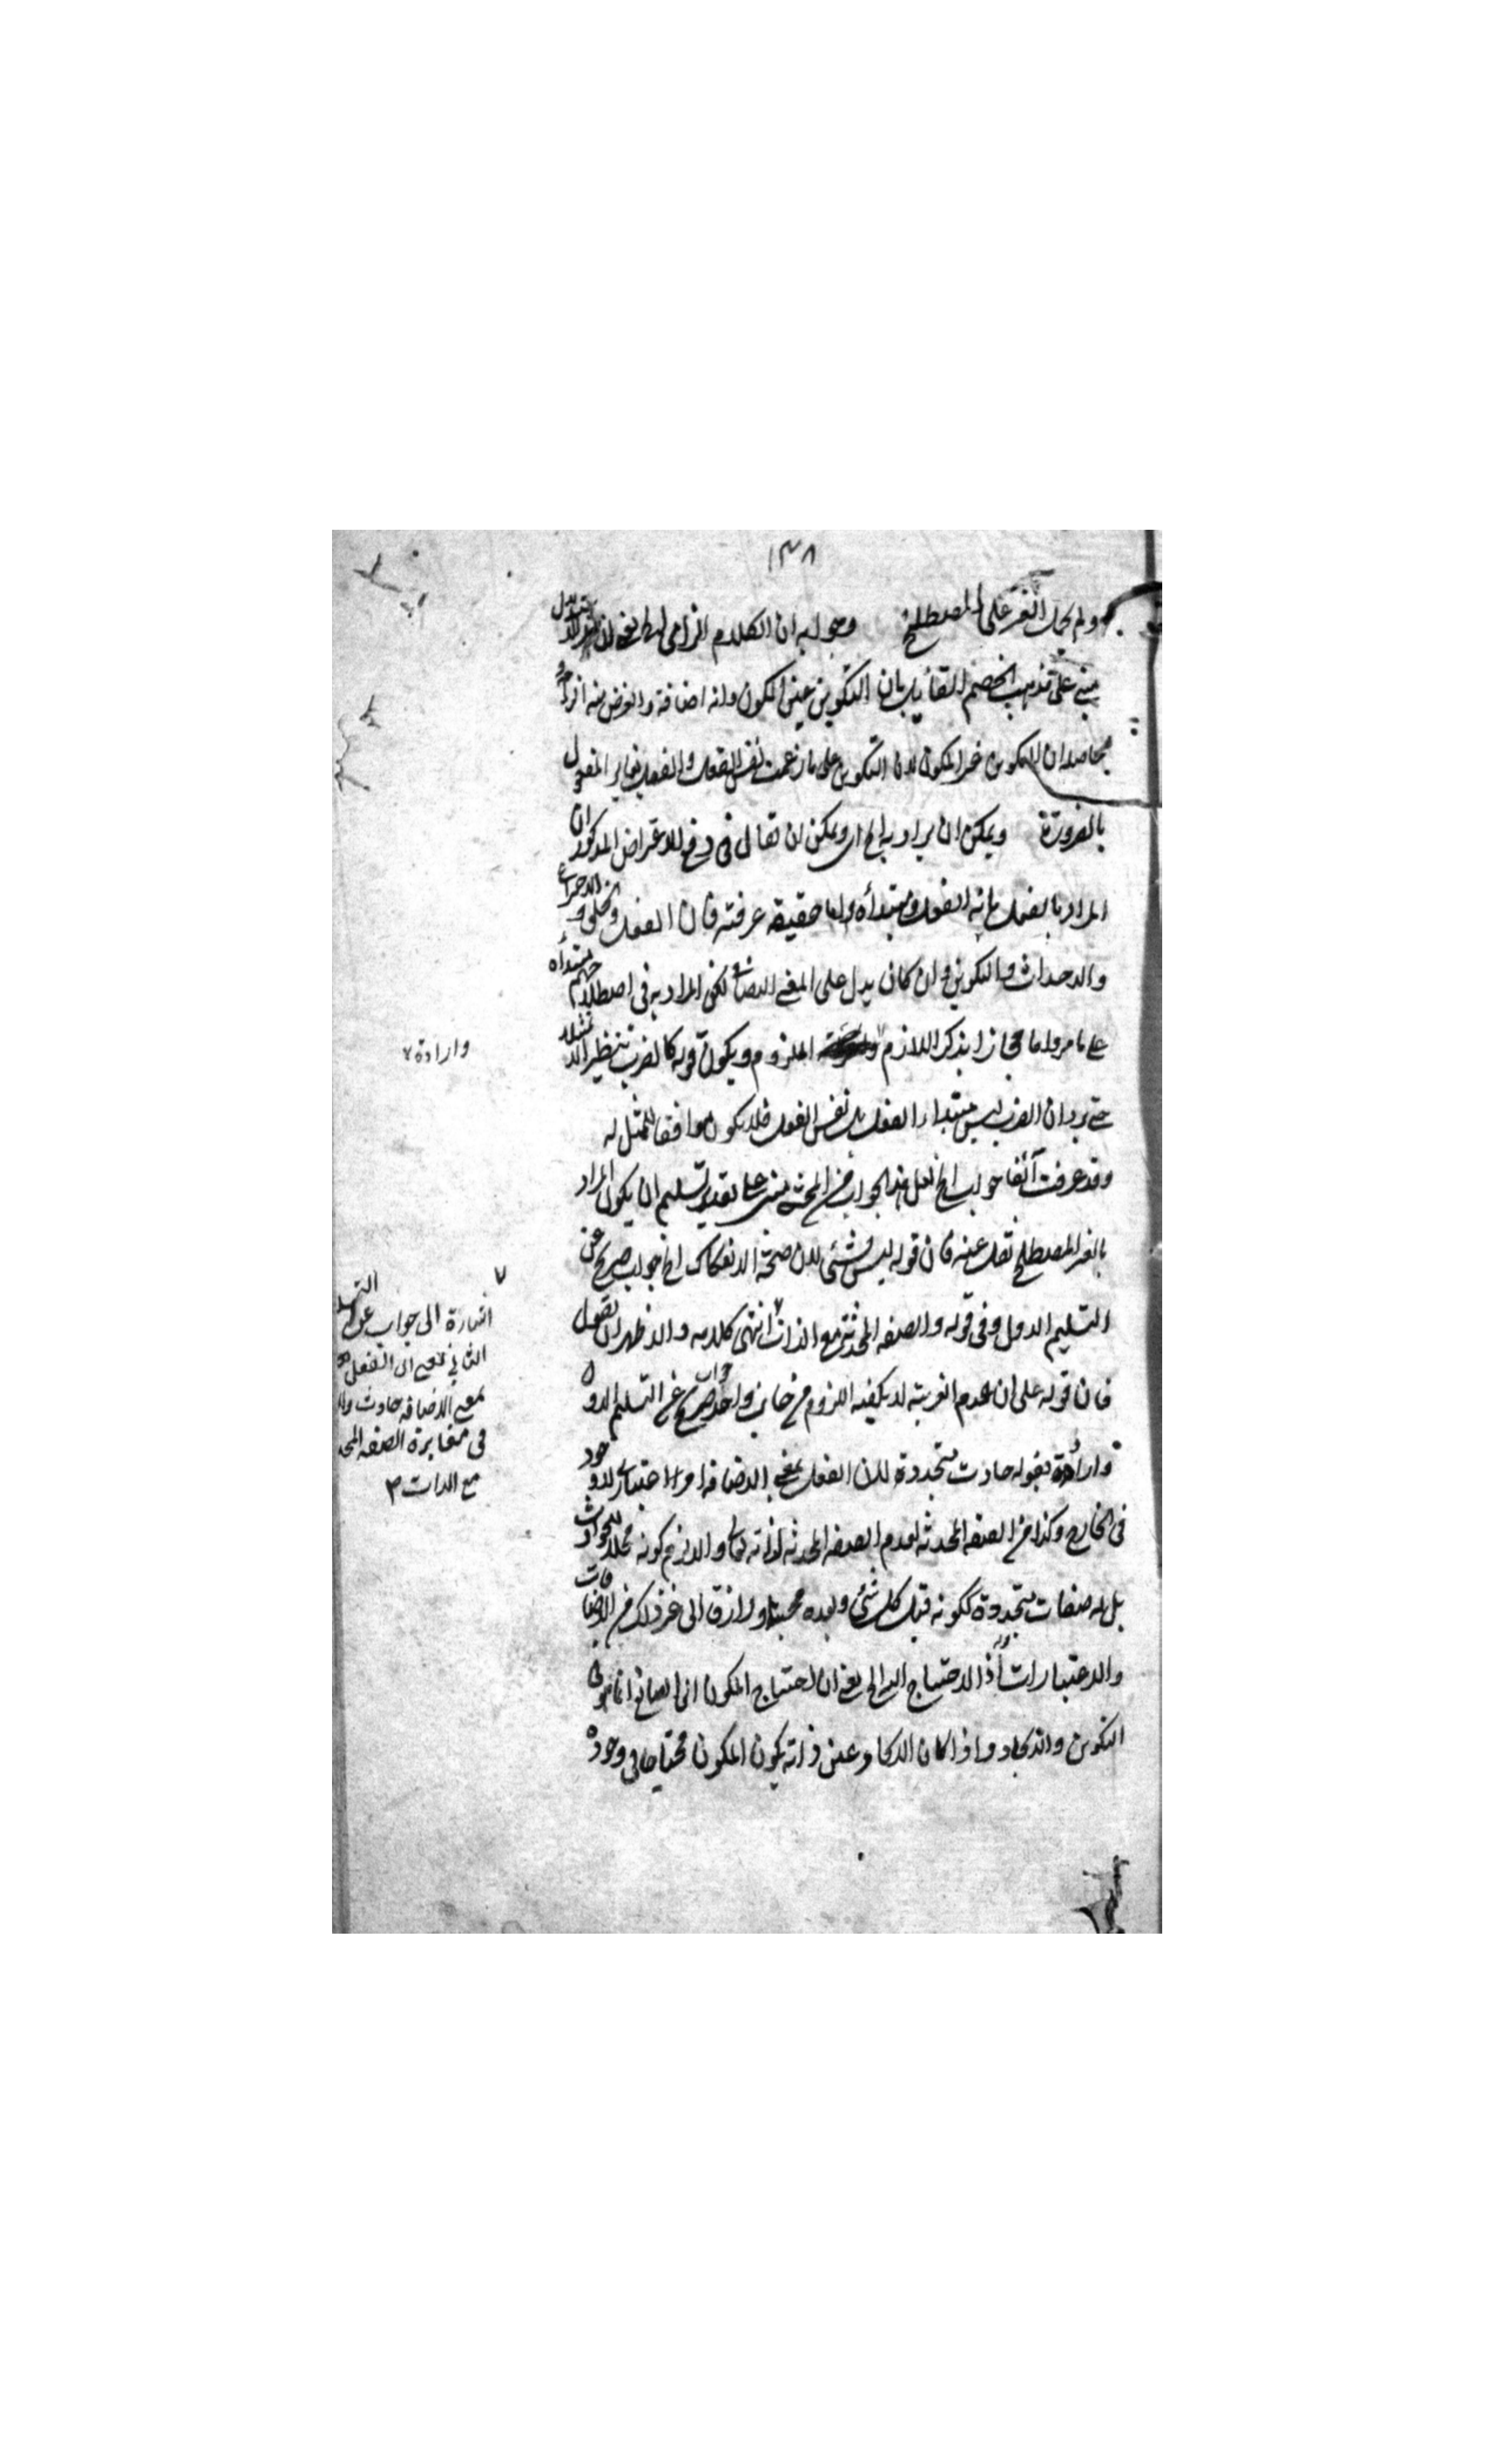 ١٣٨
ولم يحمل الغير على المصطلح وجوابه ان الكلام الزامي لان الاستدلال
مبني على مذهب الخصم القائل بان التكوين عين المكون وانه اضافة والغرض منه الزامه
محاصله ان التكوين غير المكون لان التكوين على ما زعمت نفس الفعل والفعل يغاير المفعول
بالضرورة ويمكن ان يراد به الخ اى ويمكن ان يقال في دفع الاعتراض المذكور ان
المراد بالفعل ما به الفعل ومبتدأه واما حقيقة عرفته فان الفعل والخلق والاختراع
والاحداث والتكوين وان كان يدل على المعنى الاضافى لكن المراد به في اصطلاحهم مبتدأه
على ما مر واما مجازا بذكر اللازم الملزوم ويكون قوله كالضرب تنظيرا لا تمثيلا
حتى يرد ان الضرب ليس مبتداء الفعل بل نفس الفعل فلا يكون موافقا للممثل له
وقد عرفت آنفا جوابه الخ لعل هذا الجواب من المحشى مبنى على تقدير تسليم ان يكون المراد
بالغير المصطلح نقل عنه فان قوله ليس بشئ لان صحة الانفكاك الخ جواب صريح عن
التسليم الاول وفي قوله والصفة المحدثة مع الذات انتهى كلامه والاظهر ان نقول
فان قوله على ان عدم الغيرية لا يكفيه اللزوم من جانب واحد جواب صريح عن التسليم الاول
وارادة بقوله حادث متجددة لان الفعل بمعنى الاضافة امر اعتبارى لا وجود
في الخارج وكذا من الصفة المحدثة لعدم الصفة المحدثة لذاته تعالى والا لزم كونه محلا للحوادث
بل له صفات متجددة ككونه قبل كل شئ وبعده محييا ورازق الى غير ذلك من الاضافات
والاعتبارات قوله اذ الاحتياج اليه الخ يعنى ان احتياج المكون الى الصانع انما هو في
التكوين والايجاد واذا كان الايجاد عين ذاته يكون المكون محتاجا في وجوده
وارادة
اشارة الى جواب عن التسليم
الثاني يعني ان الفعل
بمعنى الاضافة حادث
في مغايرة الصفة المحدثة
مع الذات